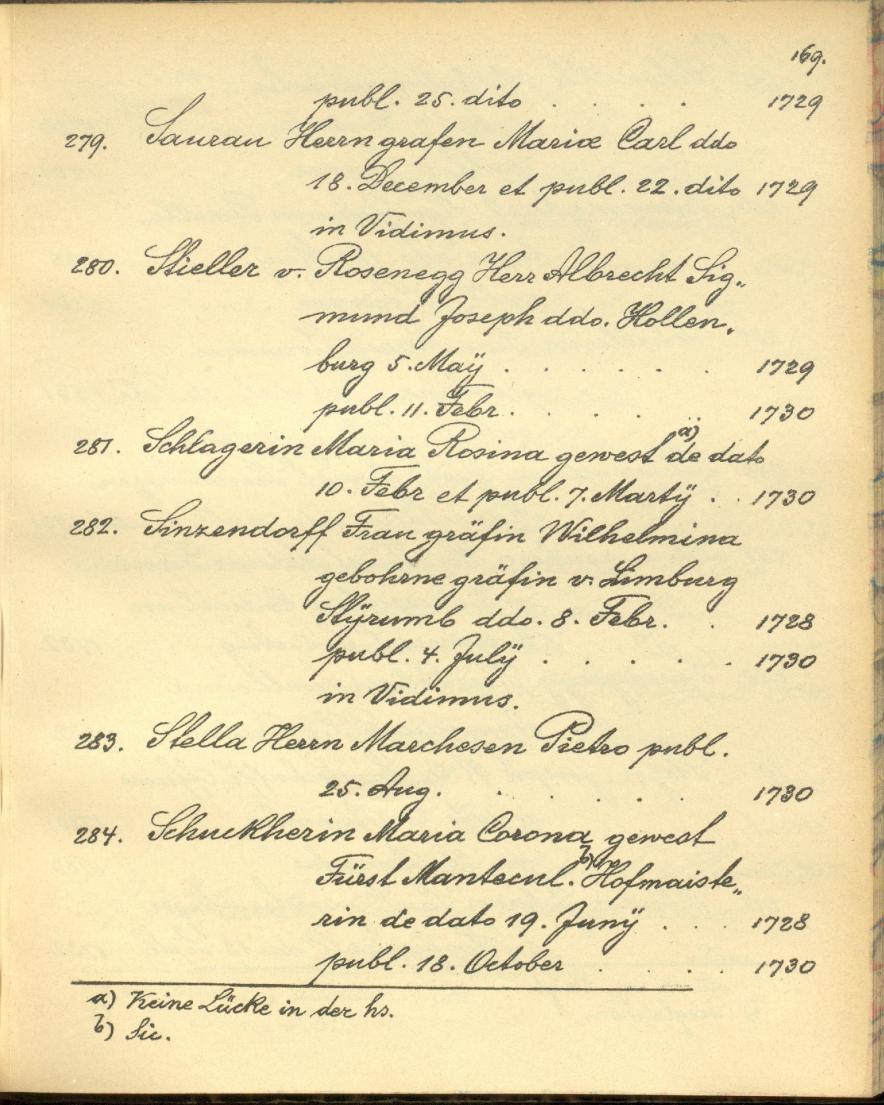 169.
publ. 25. dito . . . . 1729
279. Saurau Herrn grafen Mariæ Carl ddo
18. December et publ. 22. dito 1729
in Vidimus.
280. Stieller v. Rosenegg Herr Albrecht Sig„
mund Joseph ddo. Hollen„
burg 5. Maÿ . . . . . . 1729
publ. 11. Febr. . . . . . 1730
281. Schlagerin Maria Rosina gewest a) de dato
10. Febr et publ. 7. Martÿ . . 1730
282. Sinzendorff Frau gräfin Wilhelmina
gebohrne gräfin v. Limburg
Stÿrumb ddo. 8. Febr. . . 1728
publ. 4. Julÿ . . . . . 1730
in Vidimus.
283. Stella Herrn Marchesen Pietro publ.
25. Aug. . . . . . 1730
284. Schuckherin Maria Corona gewest
Fürst Mantecul. b) Hofmaiste„
rin de dato 19. Junÿ . . . 1728
publ. 18. October . . . . 1730
a) Keine Lücke in der hs.
b) Sic.